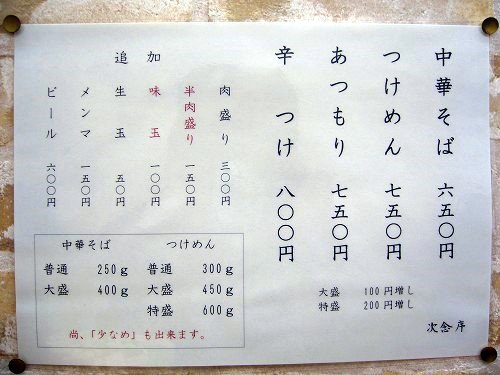 中華そば 六五〇円
つけめん 七五〇円
あつもり 七五〇円
辛つけ 八〇〇円
大盛 100円増し
特盛 200円増し
次念序
追加
肉盛り 三〇〇円
半肉盛り 一五〇円
味玉 一〇〇円
生玉 五〇円
メンマ 一五〇円
ビール 六〇〇円
中華そば つけめん
普通 250g 普通 300g
大盛 400g 大盛 450g
特盛 600g
尚、「少なめ」も出来ます。